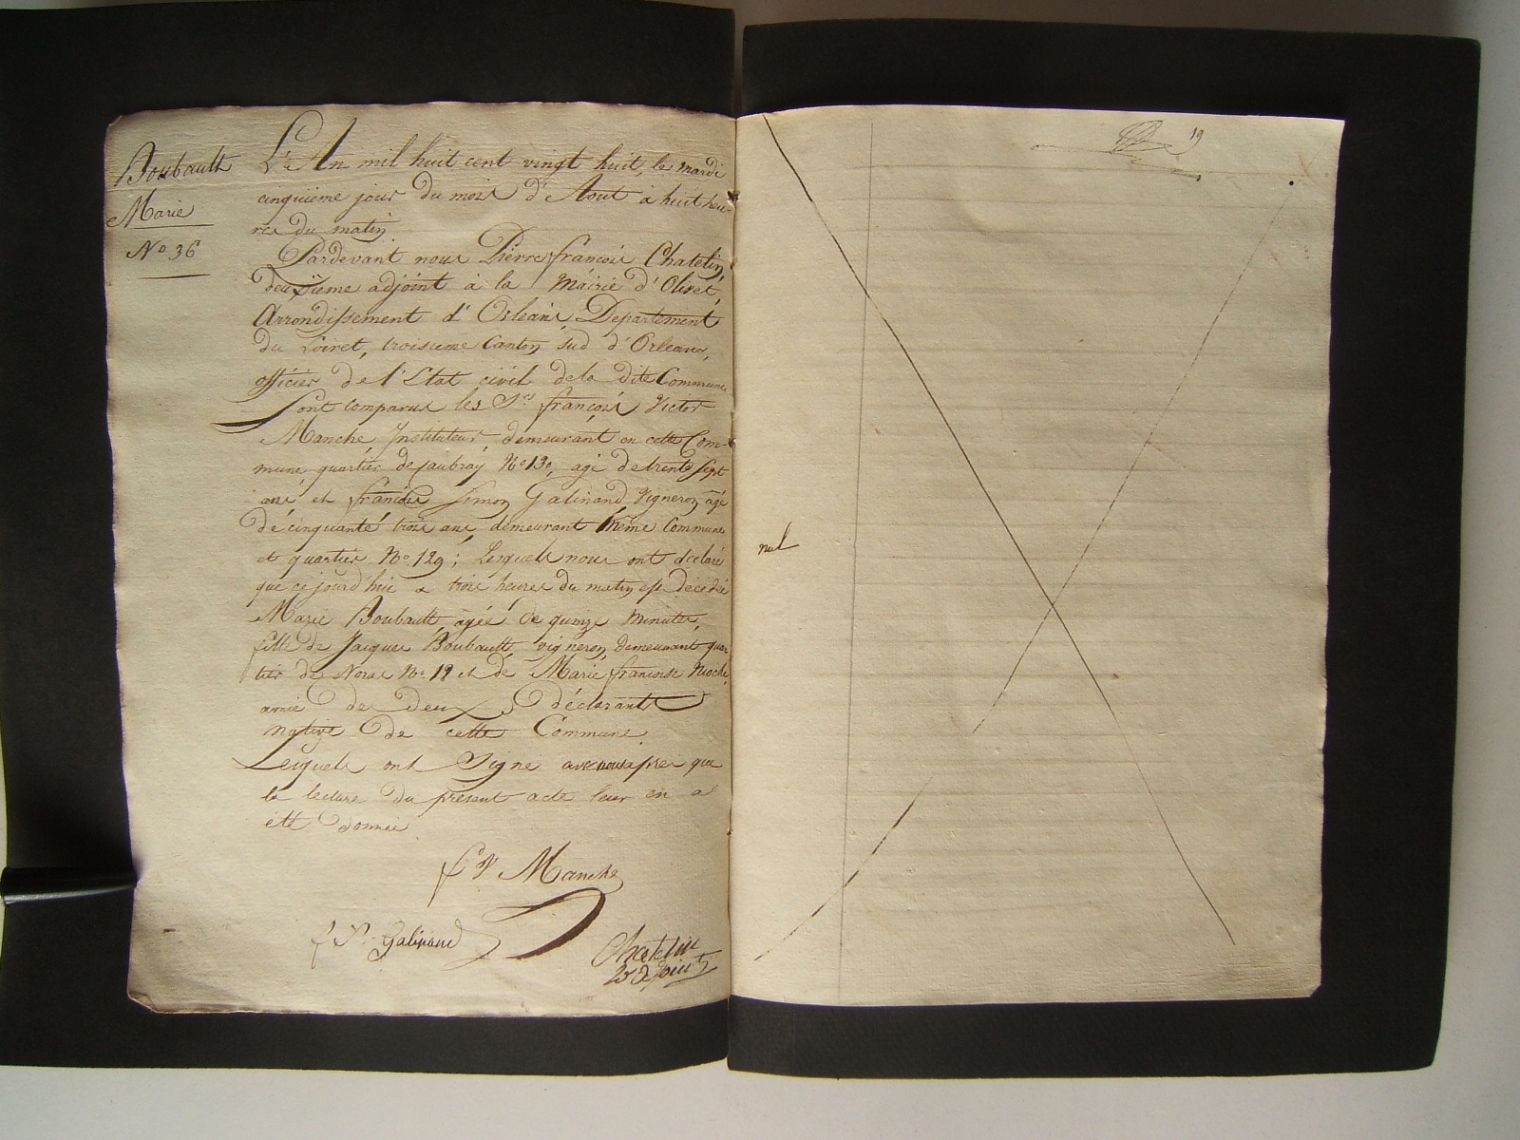 Boubault
Marie
No 36
L'An mil huit cent vingt huit, le mardi
cinquieme jour du mois d'Aout à huit heu-
res du matin.
Pardevant nous Pierre françois Chatelin,
deuxieme adjoint à la Mairie d'Olivet,
Arrondissement d'Orleans Departement
du Loiret, troisieme Canton sud d'Orleans,
officier de l'Etat civil de la dite Commune
Sont comparus les Srs françois Victor
Manche, Instituteur, demeurant en cette Com-
mune quartier de No 130, agé de trente sept
ans et françois Simon Galinand Vigneron agé
de cinquante trois ans, demeurant même Commune
et quartier No 129; Lesquels nous ont déclaré
que ce jourd'hui a trois heures du matin est décédée
Marie Boubault, agée de quinze minutes,
fille de Jacques Boubault, vigneron, demeurant quar-
tier de No 12 et de Marie françoise
amie de deux déclarants
native de cette Commune.
Lesquels ont Signé avec nous apres que
la lecture du présent acte leur en a
été donnée
f V Manche
f S. Galinand
Chatelin
2e adjoint
19
nul